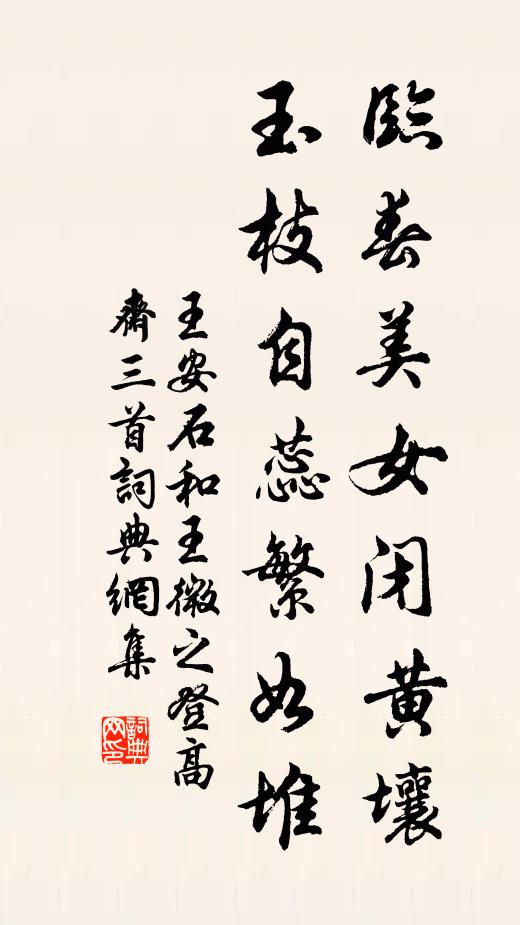 臨春美女閉黃壤
玉枝自蕊繁如堆
王安石和王微之登高
齋三首詞典網集
詞典
网印